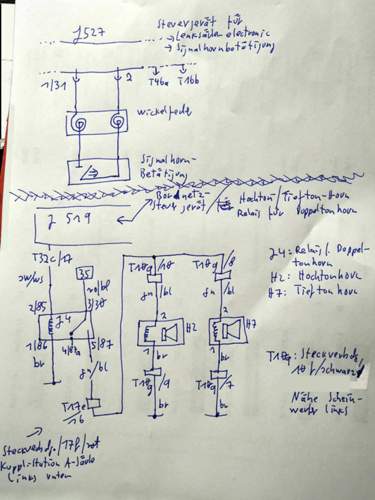 J527
Steuergerät für
Lenksäulenelectronic
+ Signalhornbetätigung
1/31 2 T46a T16b
Wickelfeder
Signalhorn-
Betätigung
Bordnetz-
Steuergerät
Hochton/Tiefton-Horn
Relais für Doppeltonhorn
J 519
T32c/17
sw/ws
35
ro/bl
2/85
3/30
J4
1/86
4/87a
5/87
br
gn/bl
T17e
/16
T10q/10
gn/bl
2
H2
1
br
T10q/9
br
T10q/8
gn/bl
2
H7
1
br
T10q/7
br
J4: Relais f. Doppel-
tonhorn
H2: Hochtonhorn
H7: Tieftonhorn
T10q: Steckverbdg.
10f/schwarz
Nähe Schein-
werfer links
Steckverbdg./17f/rot
Kuppl.-Station A-Säule
Links unten